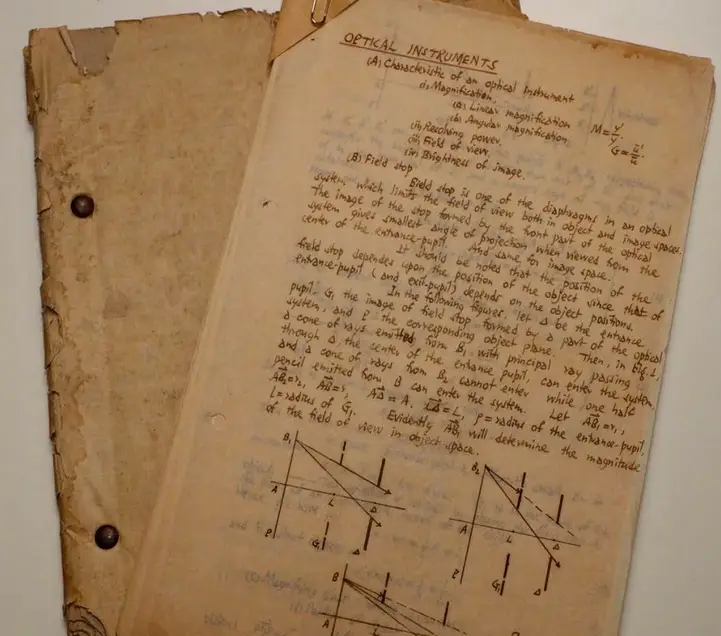 OPTICAL INSTRUMENTS
(A) Characteristic of an optical Instrument
(i) Magnification.
(a) Linear magnification M = y'/y.
(b) Angular magnification G = u'/u.
(ii) Resolving power.
(iii) Field of view.
(iv) Brightness of image.
(B) Field stop
Field stop is one of the diaphragms in an optical
system, which limits the field of view both in object and image spaces.
The image of the stop formed by the front part of the optical
system gives smallest angle of projection when viewed from the
center of the entrance-pupil. And same for image space.
It should be noted that the position of the
field stop dependes upon the position of the object since that of
entrance-pupil (and exit-pupil) depends on the object positions.
In the following figures, let Δ be the entrance
pupil, G₁ the image of field stop formed by a part of the optical
system, and P the corresponding object plane. Then, in Fig. 1,
a cone of rays emitted from B₁ with principal ray passing
through Δ, the center of the entrance pupil, can enter the system,
and a cone of rays from B₂ cannot enter while one half
pencil emitted from B can enter the system. Let AB₁=r₁,
AB₂=r₂, AB=r, AΔ=A, LΔ=L, ρ=radius of the entrance-pupil,
l=radius of G₁. Evidently AB₁ will determine the magnitude
of the field of view in object space.
B₁
A
L
Δ
P
G₁
Δ
B₂
A
L
Δ
P
G₁
Δ
B
A
L